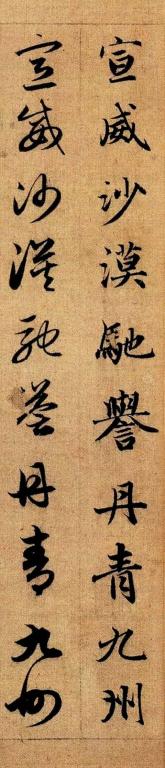 宣威沙漠馳譽丹青九州
宣威沙漠馳譽丹青九州